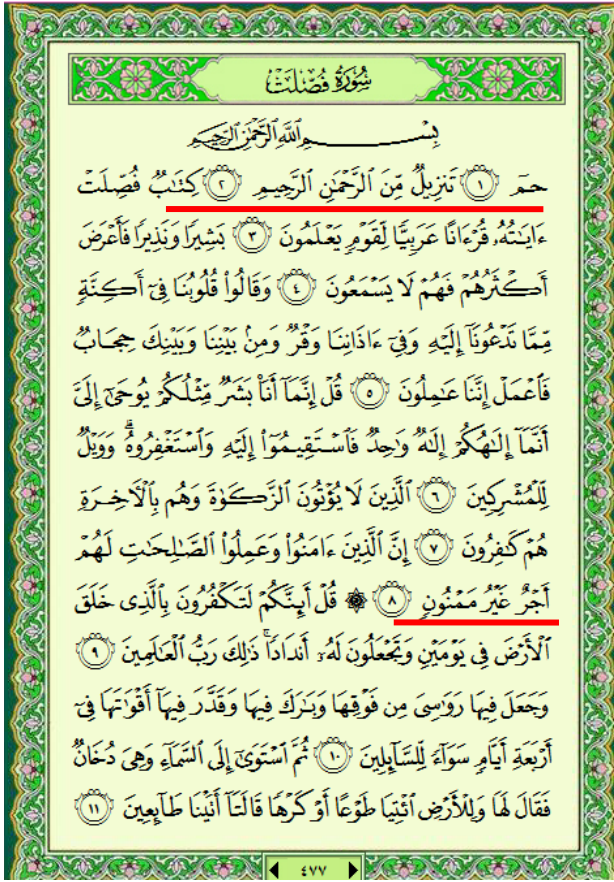 سُورَةُ فُصِّلَتْ
بِسْمِ ٱللَّهِ ٱلرَّحْمَٰنِ ٱلرَّحِيمِ
حمٓ ١ تَنزِيلٌ مِّنَ ٱلرَّحْمَٰنِ ٱلرَّحِيمِ ٢ كِتَٰبٌ فُصِّلَتْ
ءَايَٰتُهُۥ قُرْءَانًا عَرَبِيًّا لِّقَوْمٍ يَعْلَمُونَ ٣ بَشِيرًا وَنَذِيرًا فَأَعْرَضَ
أَكْثَرُهُمْ فَهُمْ لَا يَسْمَعُونَ ٤ وَقَالُوا۟ قُلُوبُنَا فِىٓ أَكِنَّةٍ
مِّمَّا تَدْعُونَآ إِلَيْهِ وَفِىٓ ءَاذَانِنَا وَقْرٌ وَمِنۢ بَيْنِنَا وَبَيْنِكَ حِجَابٌ
فَٱعْمَلْ إِنَّنَا عَٰمِلُونَ ٥ قُلْ إِنَّمَآ أَنَا۠ بَشَرٌ مِّثْلُكُمْ يُوحَىٰٓ إِلَىَّ
أَنَّمَآ إِلَٰهُكُمْ إِلَٰهٌ وَٰحِدٌ فَٱسْتَقِيمُوٓا۟ إِلَيْهِ وَٱسْتَغْفِرُوهُ ۗ وَوَيْلٌ
لِّلْمُشْرِكِينَ ٦ ٱلَّذِينَ لَا يُؤْتُونَ ٱلزَّكَوٰةَ وَهُم بِٱلْءَاخِرَةِ
هُمْ كَٰفِرُونَ ٧ إِنَّ ٱلَّذِينَ ءَامَنُوا۟ وَعَمِلُوا۟ ٱلصَّٰلِحَٰتِ لَهُمْ
أَجْرٌ غَيْرُ مَمْنُونٍ ٨ ۞ قُلْ أَئِنَّكُمْ لَتَكْفُرُونَ بِٱلَّذِى خَلَقَ
ٱلْأَرْضَ فِى يَوْمَيْنِ وَتَجْعَلُونَ لَهُۥٓ أَندَادًا ۚ ذَٰلِكَ رَبُّ ٱلْعَٰلَمِينَ ٩
وَجَعَلَ فِيهَا رَوَٰسِىَ مِن فَوْقِهَا وَبَٰرَكَ فِيهَا وَقَدَّرَ فِيهَآ أَقْوَٰتَهَا فِىٓ
أَرْبَعَةِ أَيَّامٍ سَوَآءً لِّلسَّآئِلِينَ ١٠ ثُمَّ ٱسْتَوَىٰٓ إِلَى ٱلسَّمَآءِ وَهِىَ دُخَانٌ
فَقَالَ لَهَا وَلِلْأَرْضِ ٱئْتِيَا طَوْعًا أَوْ كَرْهًا قَالَتَآ أَتَيْنَا طَآئِعِينَ ١١
٤٧٧